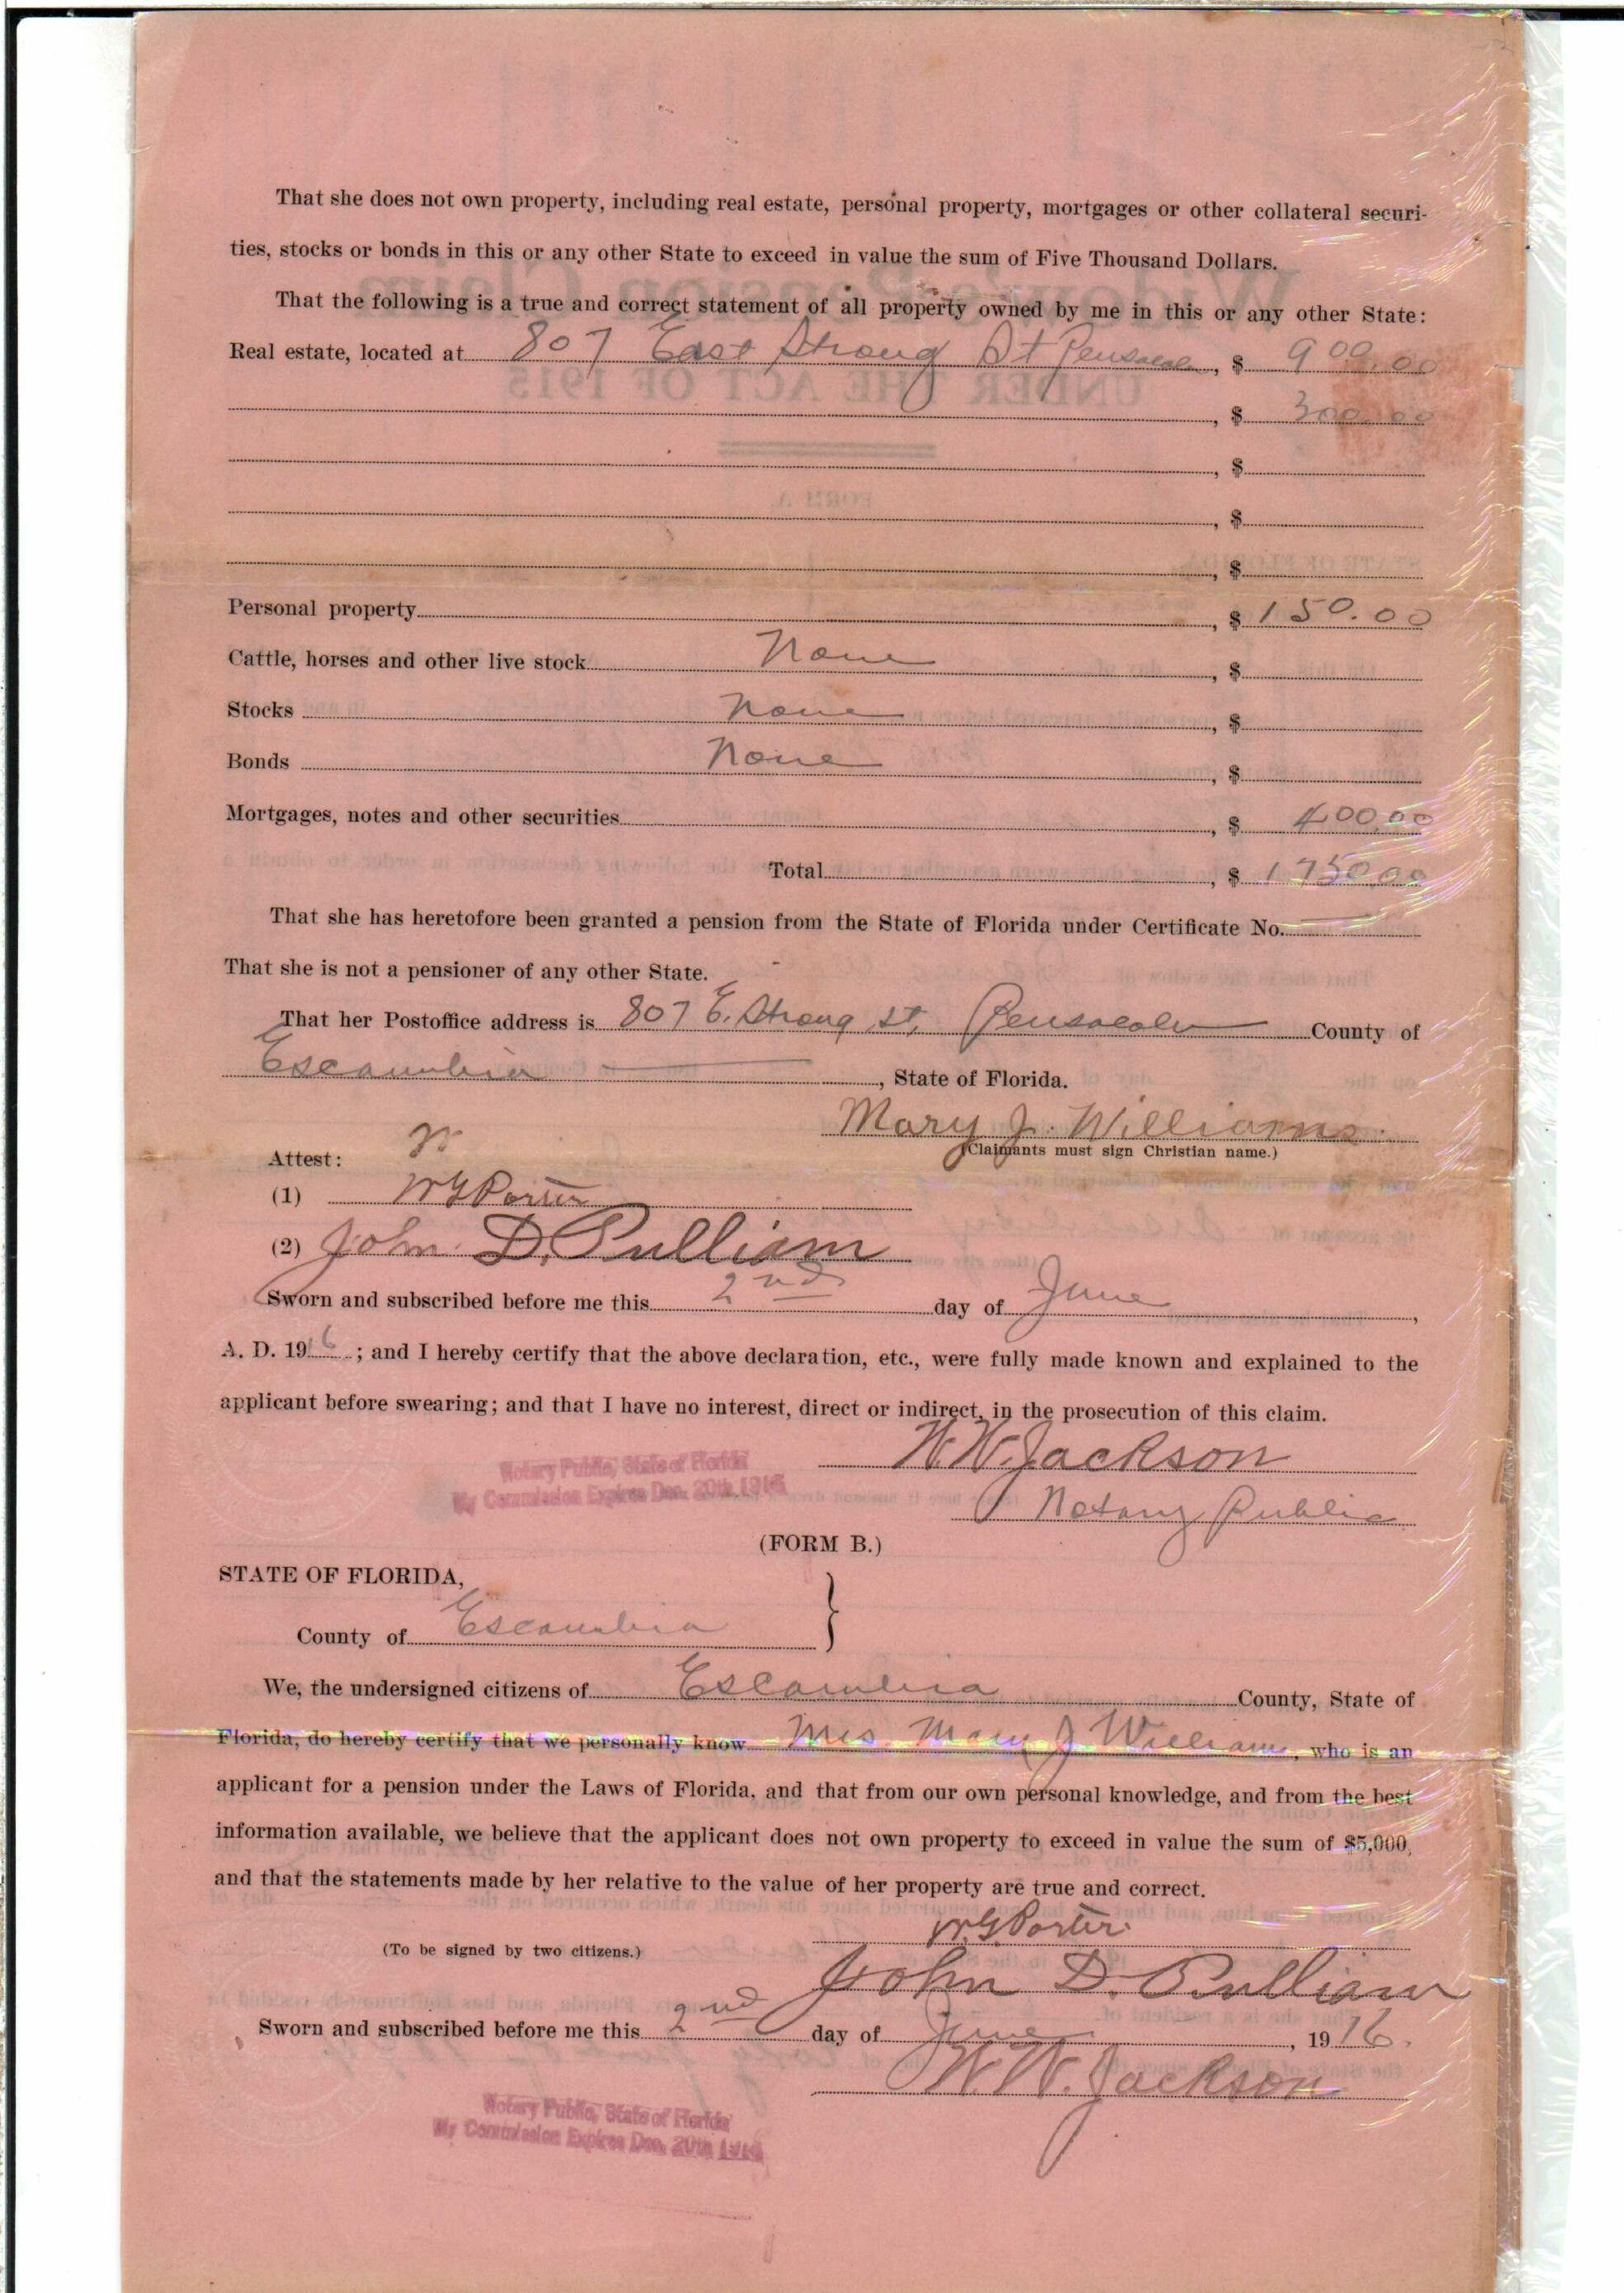 That she does not own property, including real estate, personal property, mortgages or other collateral securi-
ties, stocks or bonds in this or any other State to exceed in value the sum of Five Thousand Dollars.
That the following is a true and correct statement of all property owned by me in this or any other State:
Real estate, located at 807 East Strong St Pensacola, $ 900.00
, $ 300.00
, $
, $
, $
Personal property, $ 150.00
Cattle, horses and other live stock None, $
Stocks None, $
Bonds None, $
Mortgages, notes and other securities, $ 400.00
Total, $ 1750.00
That she has heretofore been granted a pension from the State of Florida under Certificate No.
That she is not a pensioner of any other State.
That her Postoffice address is 807 E. Strong St, Pensacola County of
Escambia, State of Florida.
Mary J. Williams
(Claimants must sign Christian name.)
Attest:
(1) W G Porter
(2) John D. Pulliam
Sworn and subscribed before me this 2nd day of June,
A. D. 1916; and I hereby certify that the above declaration, etc., were fully made known and explained to the
applicant before swearing; and that I have no interest, direct or indirect, in the prosecution of this claim.
W. W. Jackson
Notary Public, State of Florida
My Commission Expires Dec. 20th
Notary Public
(FORM B.)
STATE OF FLORIDA,
County of Escambia }
We, the undersigned citizens of Escambia County, State of
Florida, do hereby certify that we personally know Mrs. Mary J Williams, who is an
applicant for a pension under the Laws of Florida, and that from our own personal knowledge, and from the best
information available, we believe that the applicant does not own property to exceed in value the sum of $5,000,
and that the statements made by her relative to the value of her property are true and correct.
W. G. Porter
(To be signed by two citizens.)
John D. Pulliam
Sworn and subscribed before me this 2nd day of June, 1916.
W. W. Jackson
Notary Public, State of Florida
My Commission Expires Dec. 20th